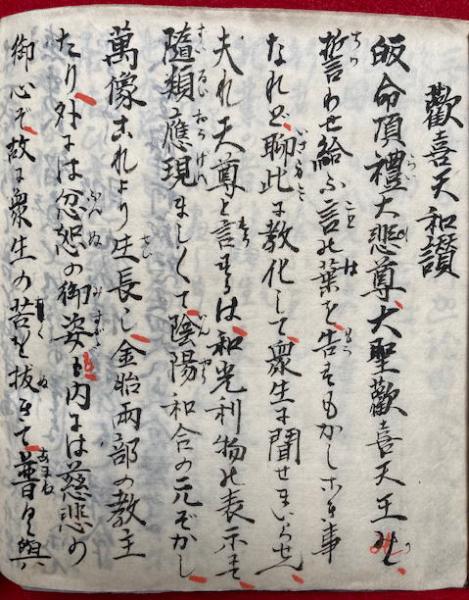 歡喜天和讃
皈命頂禮大悲尊大聖歡喜天王の
誓わせ給ふ言の葉を告るもかしこき事
なれど聊此に教化して衆生に聞せまいらせん
夫れ天尊と言するは和光利物の表示にて
隨類應現ましくて陰陽和合の元ぞかし
萬像これより生長し金胎両部の教主
たり外には忿怒の御姿も内には慈悲の
御心ぞ故に衆生の苦を抜きて普く與